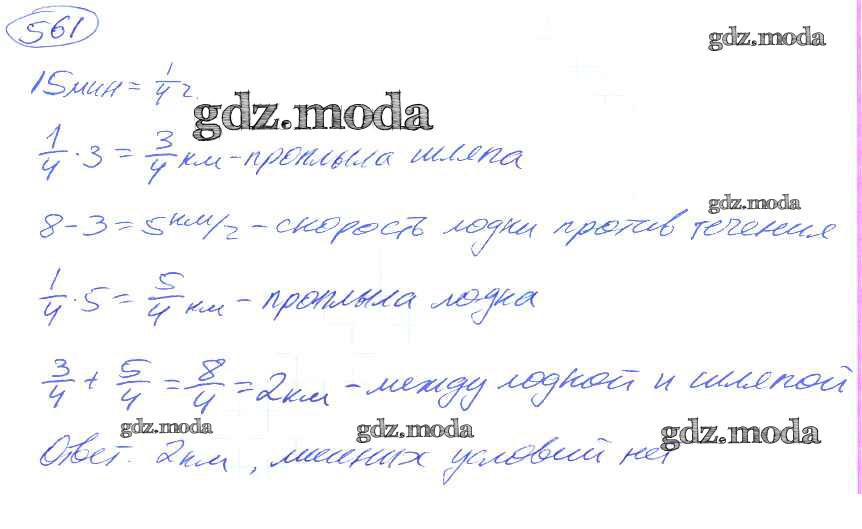 561
gdz.moda
15мин = 1/4 ч.
gdz.moda
1/4 · 3 = 3/4 км - проплыла шляпа
gdz.moda
8 - 3 = 5 км/ч - скорость лодки против течения
1/4 · 5 = 5/4 км - проплыла лодка
3/4 + 5/4 = 8/4 = 2км - между лодкой и шляпой
gdz.moda gdz.moda gdz.moda
Ответ. 2км, лишних условий нет